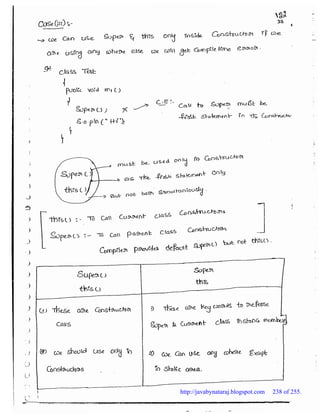 Case(iii):-
→ we can use Super & this only inside Constructor if we
are using any where else we will get Compile time error.
Ex: class Test
{
public void m1()
{
Super(); X → C.E:- Call to Super must be
S.o.pln("Hi"); first statement in the Constructor
}
}
Super() → must be used only in Constructors
→ as the first statement only
this() → But not both Simultaniously
This() :- To Call Current class Constructors
Super() :- To Call Parent class Constructors
Compiler provides default Super() but not this().
Super() Super
this() this
(1) These are Constructor 1) these are Keywords to refer
Calls Super & Current class instance members
(2) we should use only in 2) we can use any where Except
Constructors in static area.
http://javabynataraj.blogspot.com 238 of 255.